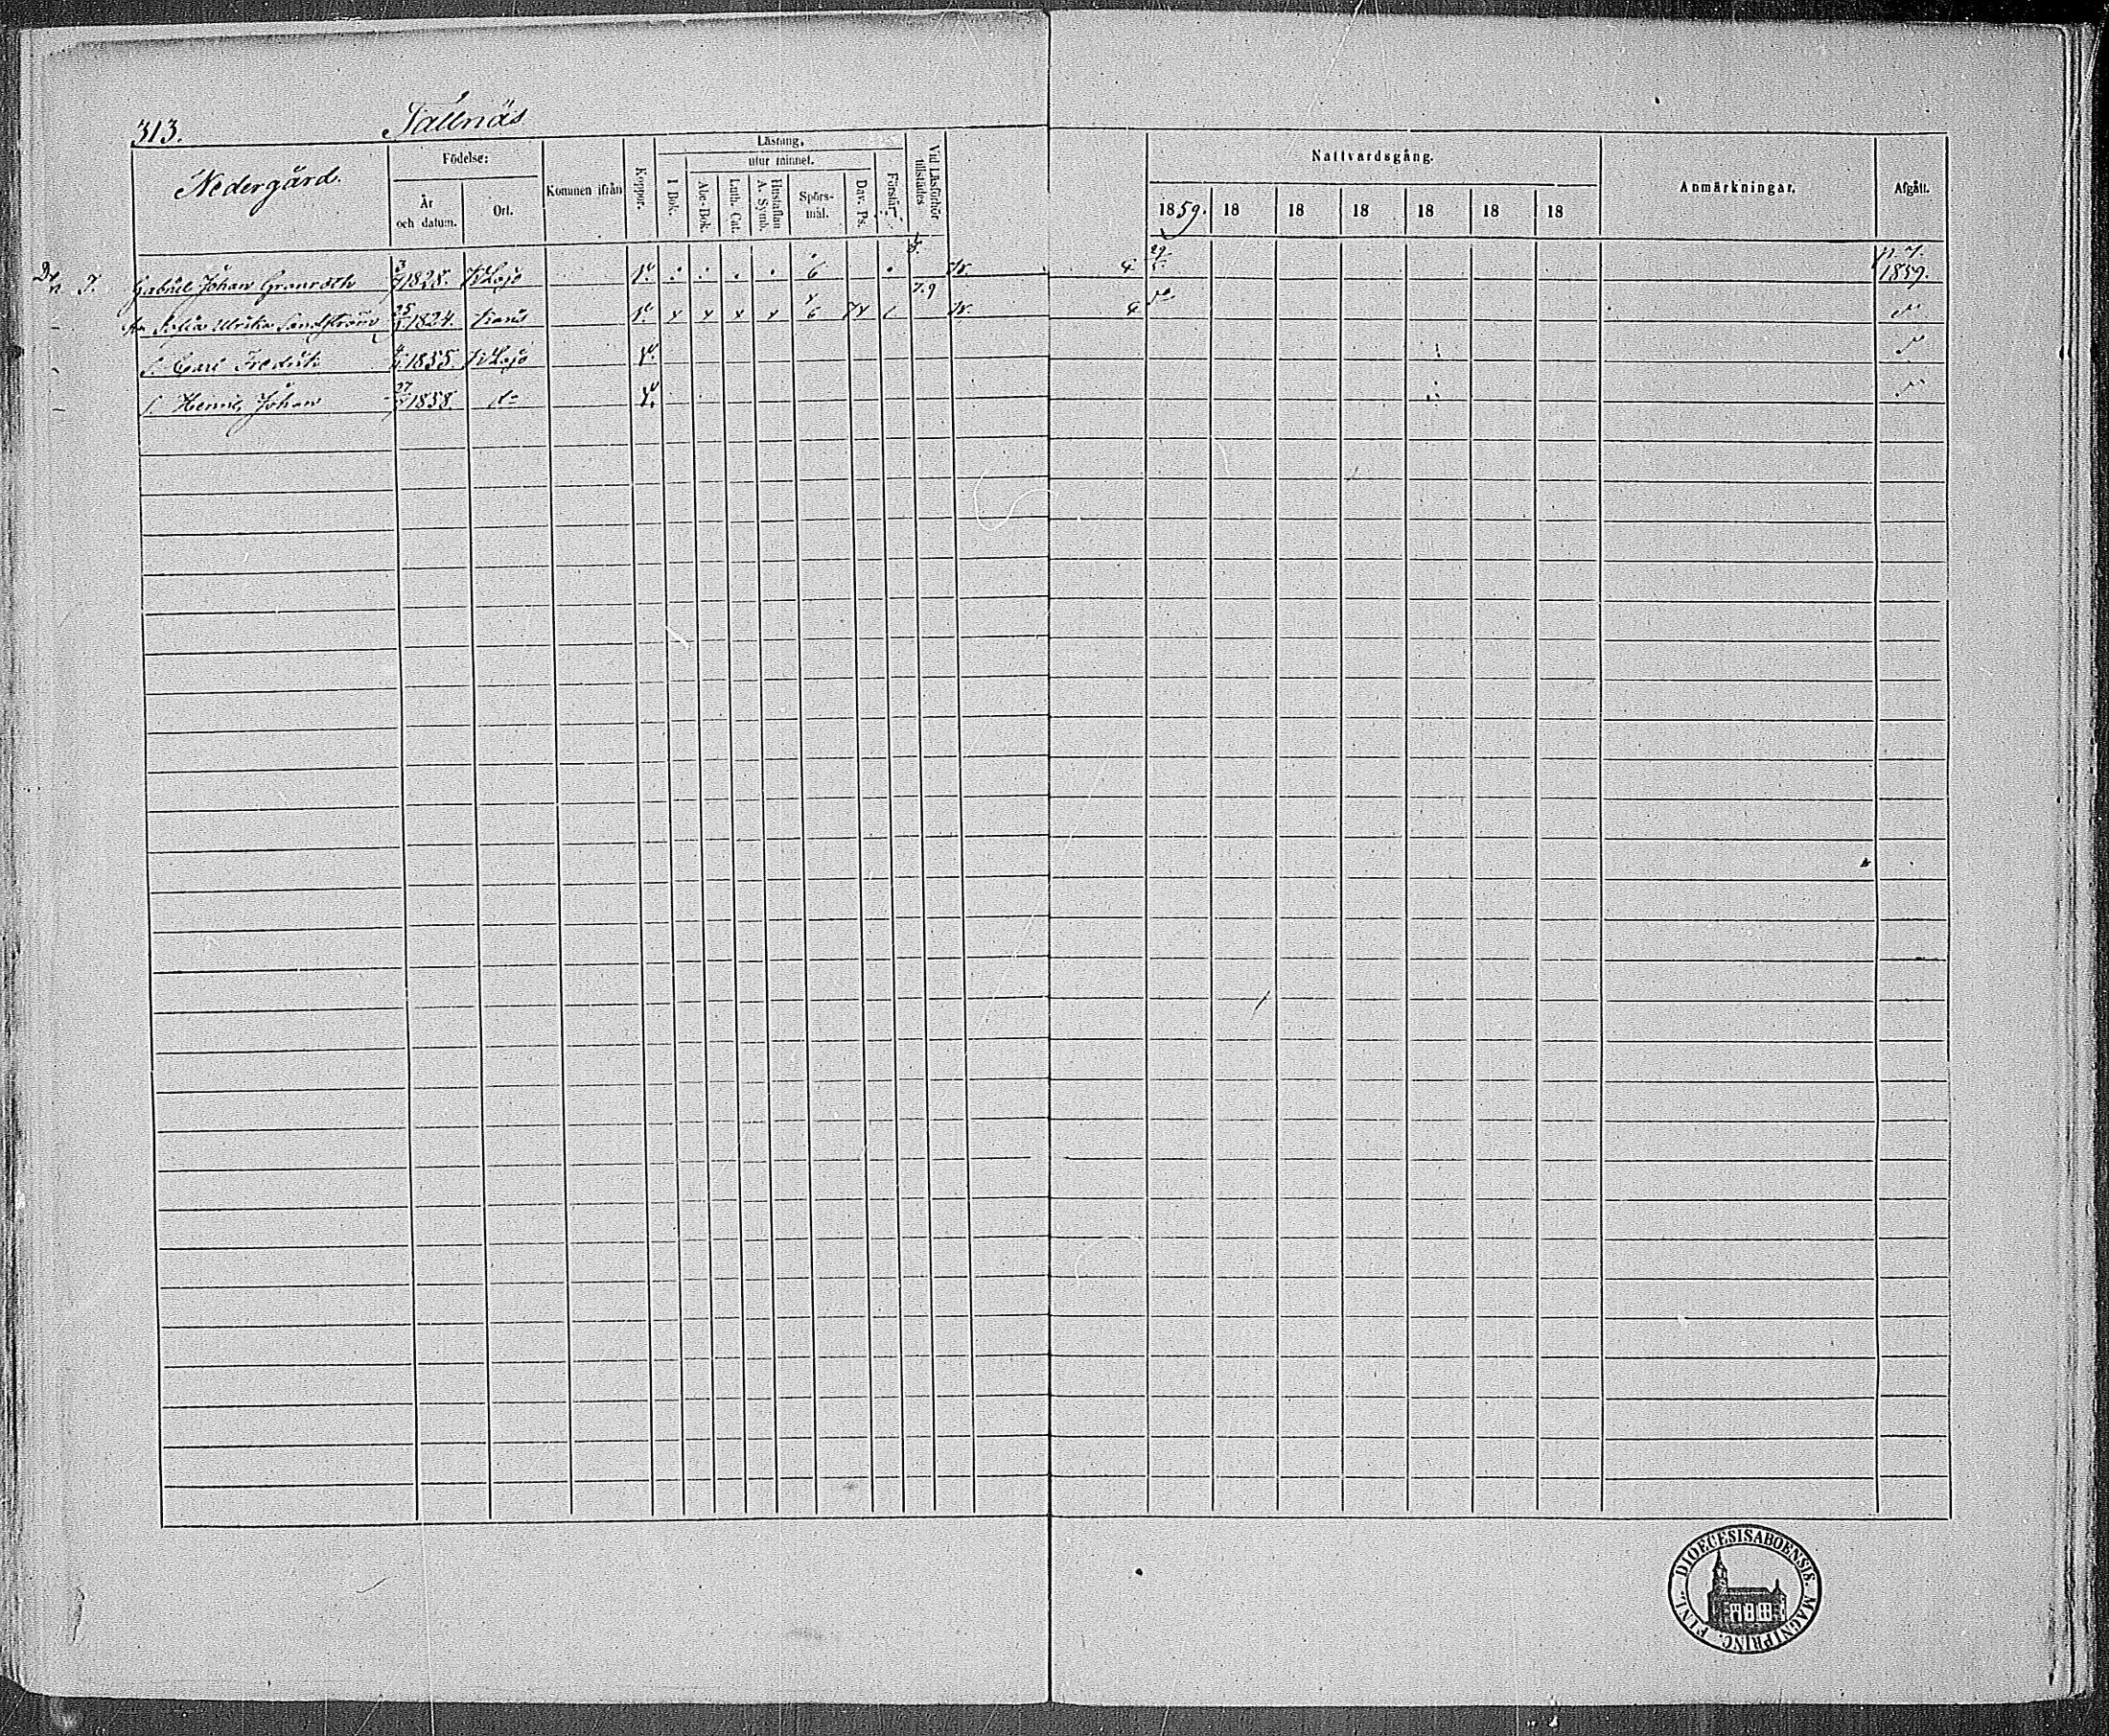 313. Tallnäs
Nedergård.
Födelse:
År och datum.
Ort.
Kommen ifrån
Koppor.
Läsning,
utur minnet.
I Bok.
Abc-Bok.
Luth. Cat.
Hustaflan A. Symb.
Spörs-mål.
Dav. Ps.
Förstår
Vid Läsförhör tillstädes
Nattvardsgång.
1859. 18 18 18 18 18 18
Anmärkningar.
Afgått.
Gabriel Johan Granroth 1828. Lojo 6 4 29 1859.
Sofia Ulrika Sandström 25 1824. 6 4
S. Carl Fredrik 1855. Lojo
S. Henric Johan 27 1858. do
DIOECESIS ABOENSIS. MAGNI PRINC. FINL.